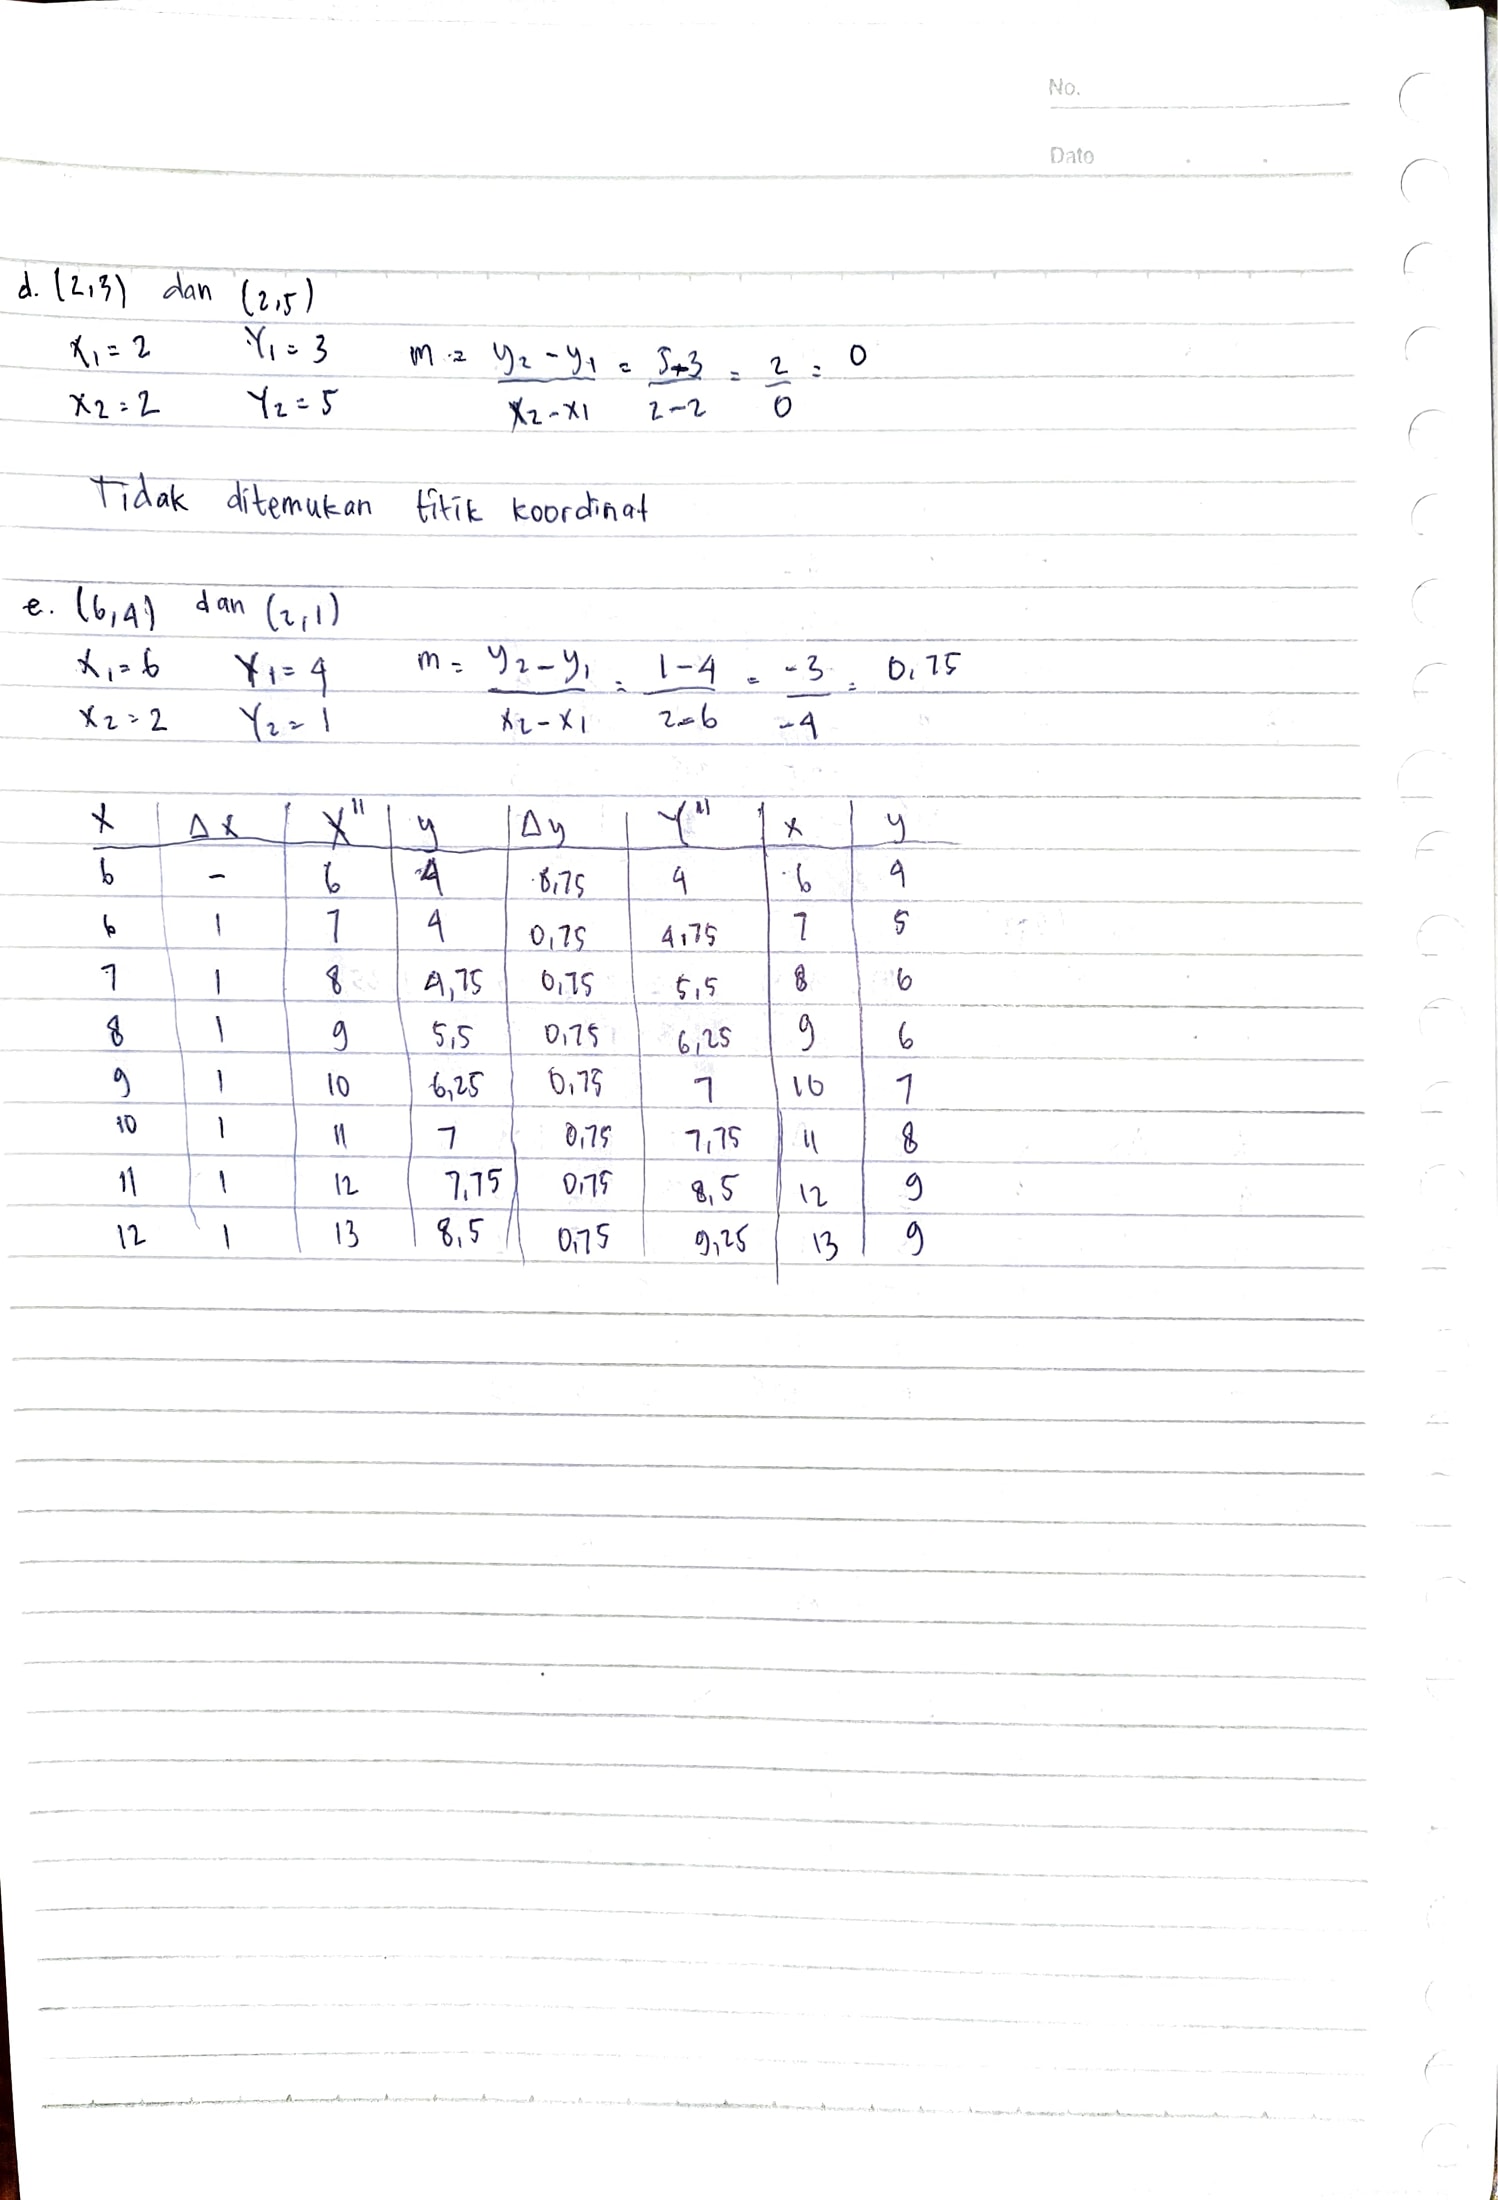 No.
Date
d. (2,3) dan (2,5)
X1 = 2 Y1 = 3 m = y2 - y1 / x2 - x1 = 5-3 / 2-2 = 2 / 0 = 0
X2 = 2 Y2 = 5
Tidak ditemukan titik koordinat
e. (6,4) dan (2,1)
X1 = 6 Y1 = 4 m = y2 - y1 / x2 - x1 = 1-4 / 2-6 = -3 / -4 = 0,75
X2 = 2 Y2 = 1
X Δx X" y Δy Y" x y
6 - 6 4 0,75 4 6 4
6 1 7 4 0,75 4,75 7 5
7 1 8 4,75 0,75 5,5 8 6
8 1 9 5,5 0,75 6,25 9 6
9 1 10 6,25 0,75 7 10 7
10 1 11 7 0,75 7,75 11 8
11 1 12 7,75 0,75 8,5 12 9
12 1 13 8,5 0,75 9,25 13 9